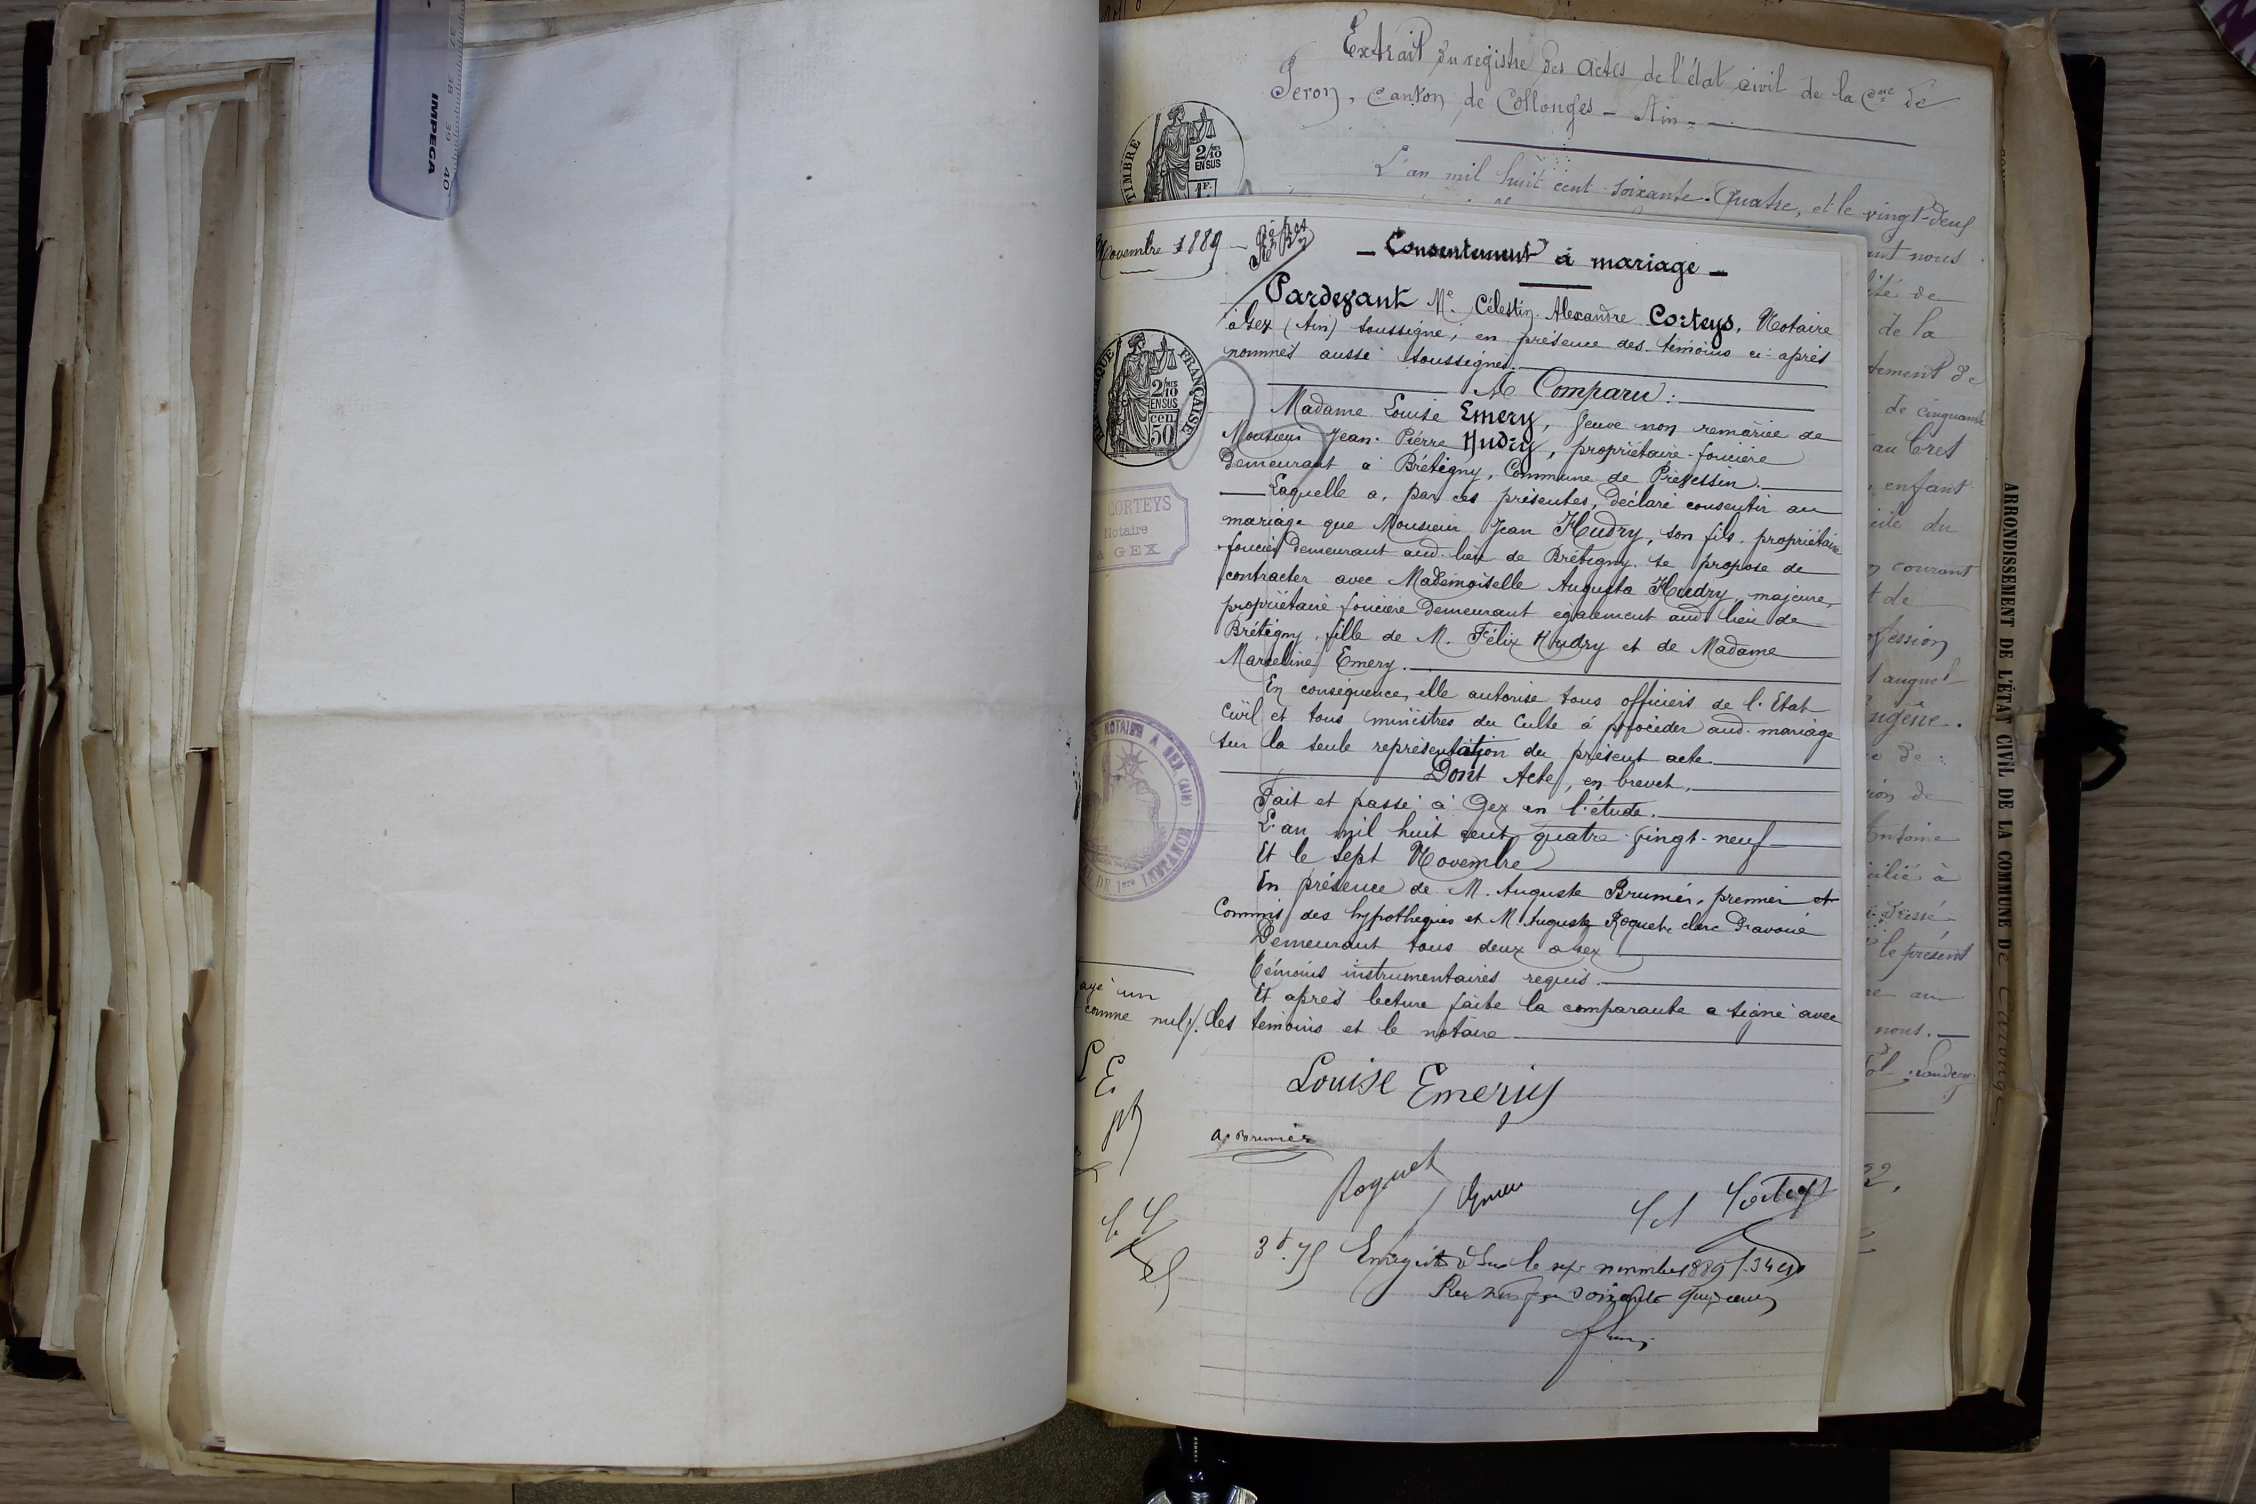 IMPEGA
38 39 40
Extrait du registre des actes de l'état civil de la Cne de
Peron, canton de Collonges - Ain -
L'an mil huit cent soixante-quatre, et le vingt-deux
TIMBRE
2/10
EN SUS
1F.
Novembre 1889
- Consentement à mariage -
Pardevant Me. Célestin Alexandre Corteys, Notaire
à Gex (Ain) soussigné, en présence des témoins ci-après
nommés aussi soussignés.
A Comparu:
Madame Louise Emery, veuve non remariée de
Monsieur Jean-Pierre Hudry, propriétaire-foncière
demeurant à Brétigny, Commune de Prévessin.
Laquelle a, par ces présentes, déclaré consentir au
mariage que Monsieur Jean Hudry, son fils, propriétaire
foncier demeurant aud. lieu de Brétigny, se propose de
contracter avec Mademoiselle Augusta Hudry, majeure,
propriétaire foncière demeurant également aud. lieu de
Brétigny, fille de M. Félix Hudry et de Madame
Marceline Emery.
En conséquence, elle autorise tous officiers de l'Etat
Civil et tous ministres du Culte à procéder aud. mariage
sur la seule représentation du présent acte.
Dont Acte, en brevet,
Fait et passé à Gex en l'étude.
L'an mil huit cent quatre vingt-neuf
Et le sept Novembre
En présence de M. Auguste Brumer, premier
Commis des hypothèques et M. Auguste Roquet, clerc d'avoué
Demeurant tous deux à Gex
Témoins instrumentaires requis.
Et après lecture faite la comparante a signé avec
les témoins et le notaire
FRANÇAISE
2/10
EN SUS
cen
50
CORTEYS
Notaire
à GEX
NOTAIRE A GEX (AIN)
DE 1ère
un
comme nul
L E
Louise Emery
Roquet
Corteys
3f.75
le sept novembre 1889
soixante quinze
ant nous
de la
tement de
de cinquante
au Cret
enfant
courant
de
fession
Antoine
à
le présent
nous.
ARRONDISSEMENT DE L'ÉTAT CIVIL DE LA COMMUNE DE